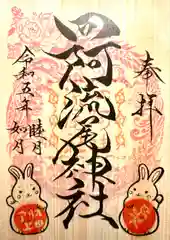 奉拝
阿流尾神社
令和五年
睦月
如月